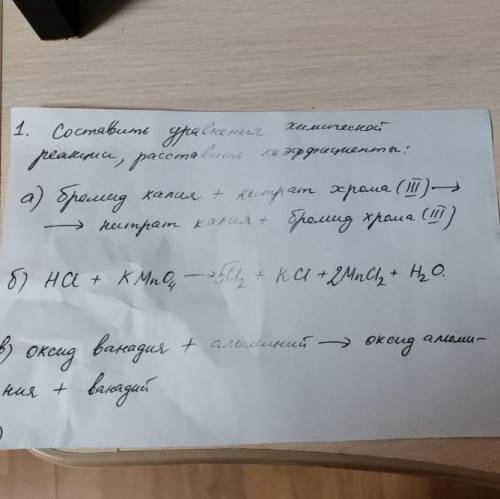 1. Составить уравнения химической
реакции, расставить коэффициенты:
а) бромид калия + нитрат хрома (III) →
→ нитрат калия + бромид хрома (III)
б) HCl + KMnO₄ → 5Cl₂ + KCl + 2MnCl₂ + H₂O.
в) оксид ванадия + алюминий → оксид алюми-
ния + ванадий
)